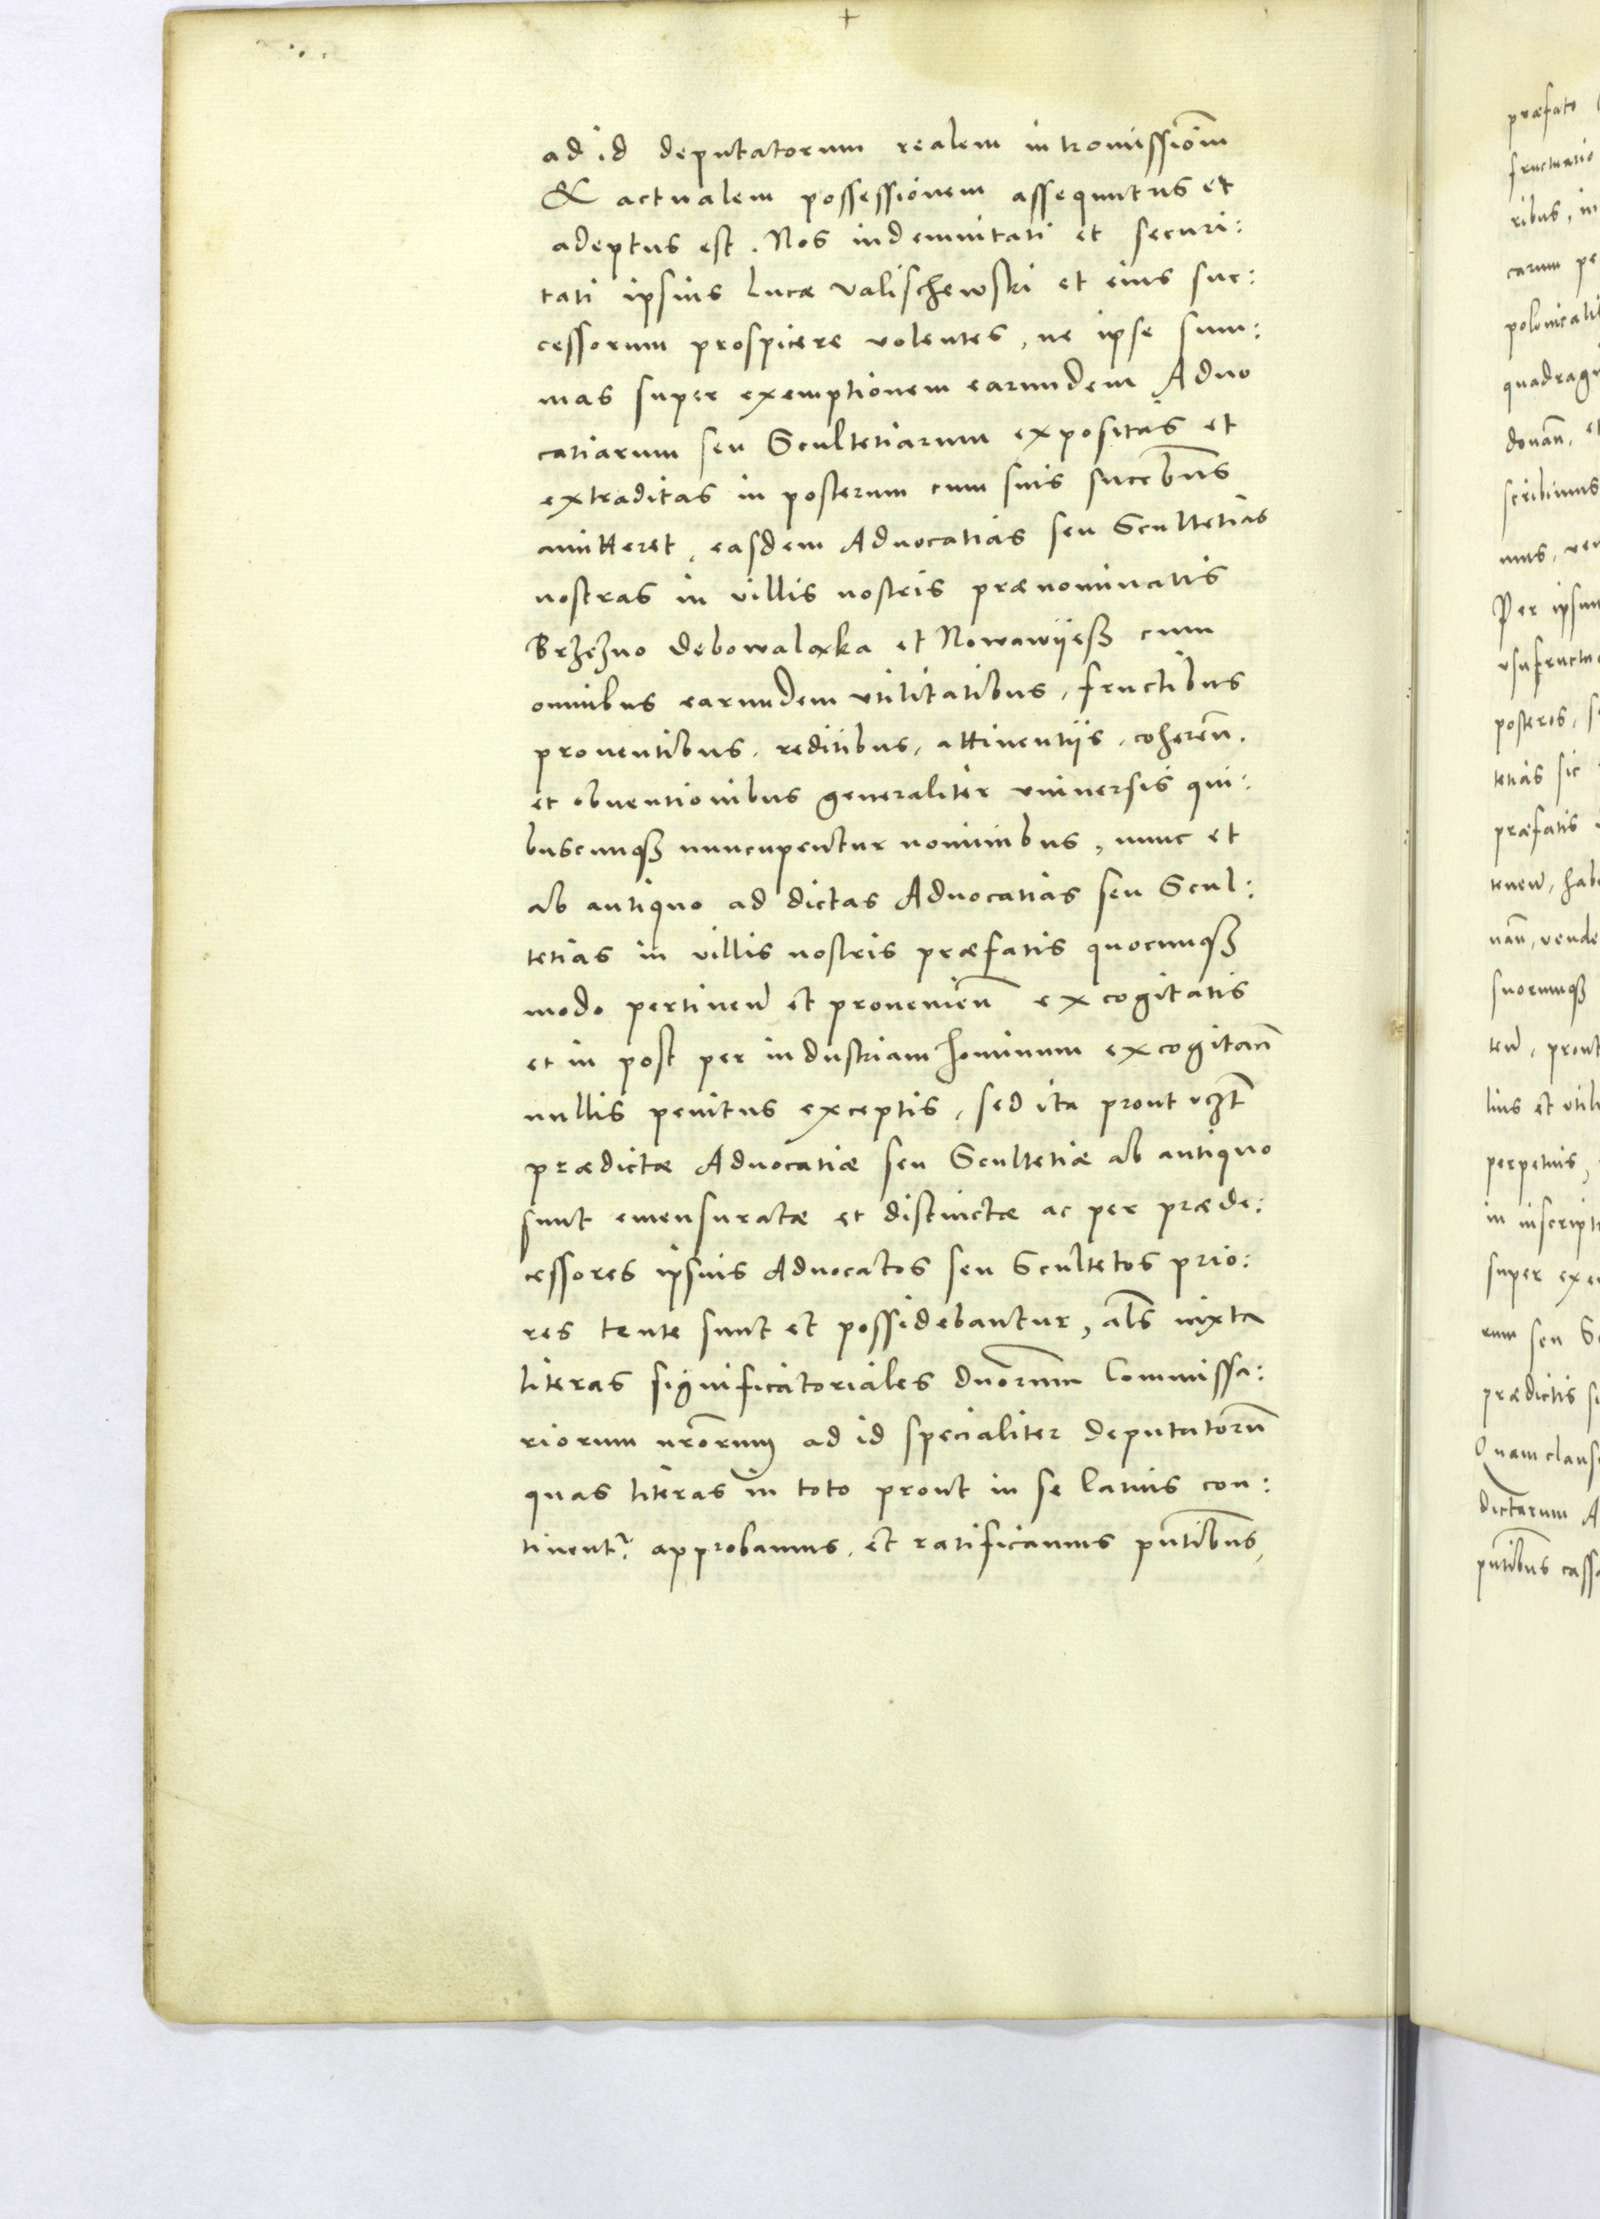 ad id deputatorum realem intromissiōm
& actualem possessionem assequutus et
adeptus est. Nos indemnitati et securi:
tati ipsius Lucæ Valischewski et eius suc:
cessorum prospicere volentes, ne ipse sum:
mas super exemptionem earundem Aduo
catiarum seu Scultetiarum expositas et
extraditas in posterum cum suis succ̄bus
amitteret, easdem Aduocatias seu Scultetias
nostras in villis nostris prænominatis
Brzezno debowalaka et Nowawijesz cum
omnibus earundem vtilitatibus, fructibus
prouentibus, reditibus, attinentijs, coheren̄.
et obuentionibus generaliter vniuersis qui:
buscunqz nuncupentur nominibus, nunc et
ab antiquo ad dictas Aduocatias seu Scul:
tetias in villis nostris præfatis quocunqz
modo pertinen̄ et prouenien̄ excogitatis
et in post per industriam hominum excogitan̄
nullis penitus exceptis, sed ita prout vzt̄
prædictæ Aduocatiæ seu Scultetiæ ab antiquo
sunt emensuratæ et distinctæ ac per præde:
cessores ipsius Aduocatos seu Scultetos prio:
res tente sunt et possidebantur, al̄s iuxta
literas significatoriales duōrum Commissa:
riorum nrōrum ad id specialiter deputatorū
quas literas in toto prout in se latius con:
tinent̉ approbamus, et ratificamus pn̄tibus,
præfato
fructuario
ribus, in
carum pe
polonicali
quadrag
donan̄, et
scribimus
mus, ven
Per ipsum
vsufructu
posteros, s
tetias sic
præfatis
tenen̄, hab
nan̄, vende
suorumqz
ten̄, prout
lius et vtil
perpetuis,
in inscript
super exe
rum seu S
prædictis s
Quam claus
dictarum A
pn̄tibus cass